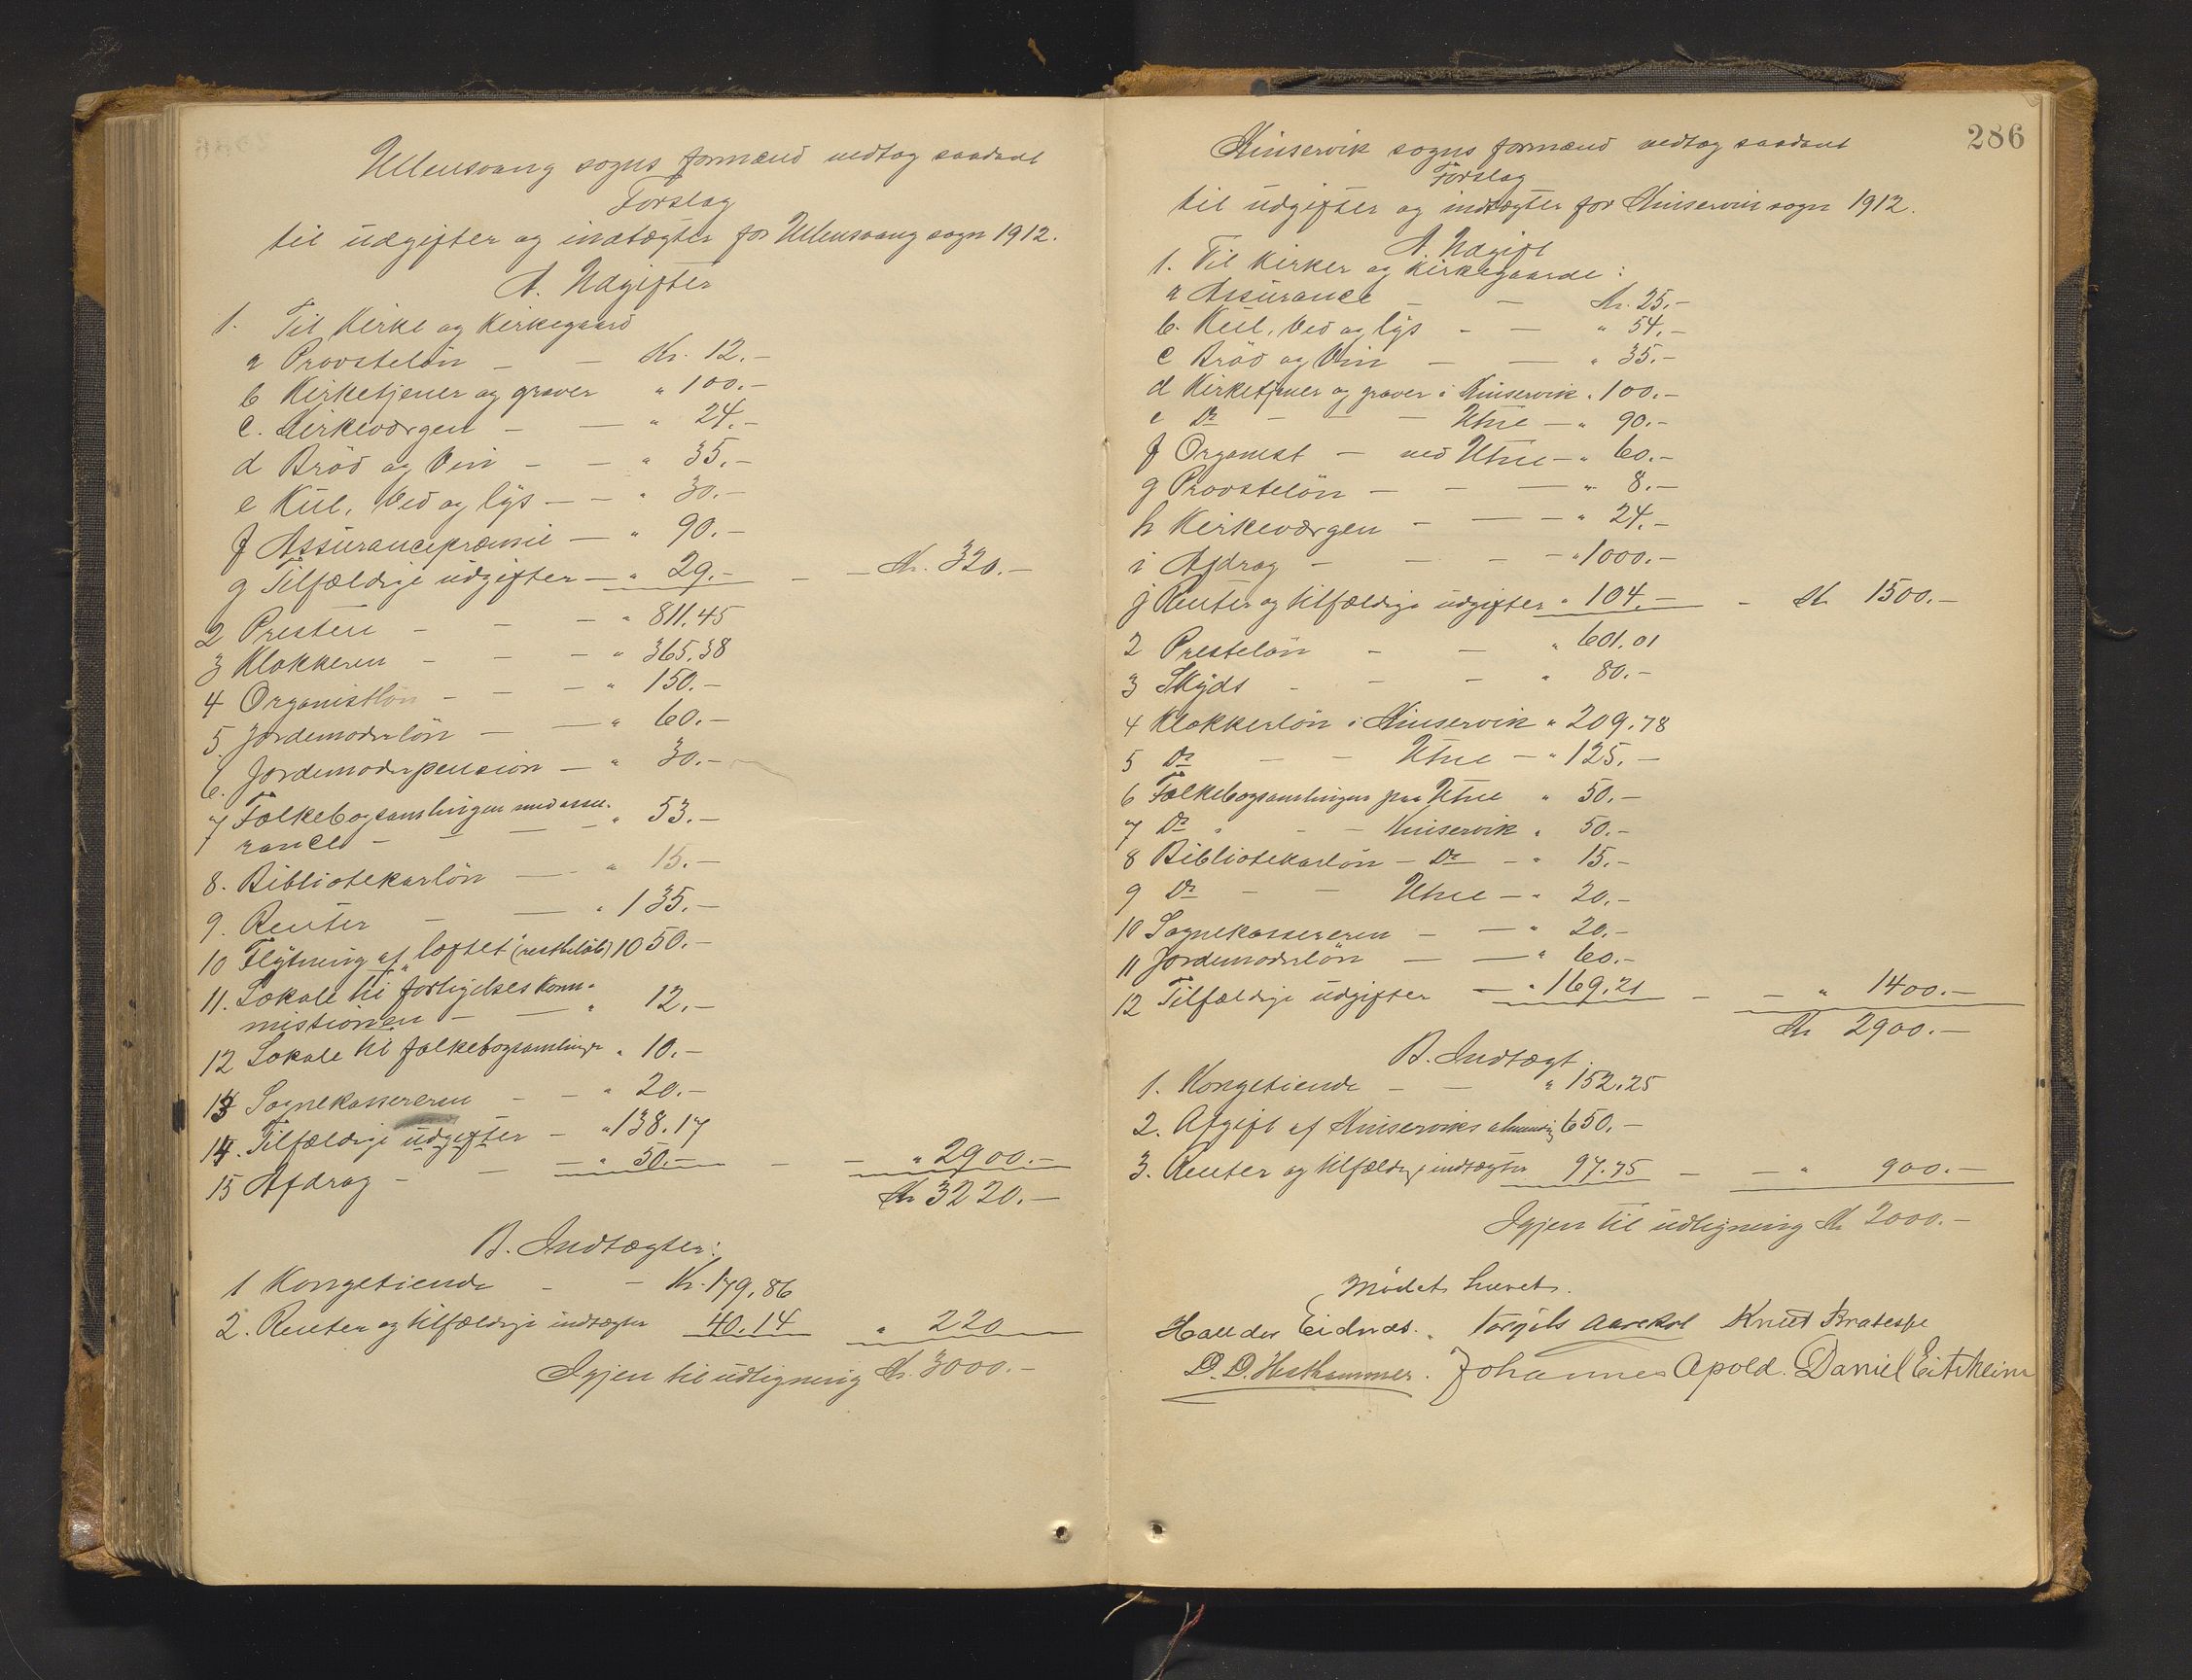 Ullensvang sogns formænd vedtog saadant
Forslag
til udgifter og indtægter for Ullensvang sogn 1912.
A. Udgifter
1. Til Kirke og Kirkegaard
a Provstelön – – Kr. 12.–
b Kirketjener og graver " 100.–
c. Kirkeværgen – – " 24.–
d Bröd og Vin – – " 35.–
e Kul, Ved og lys – – " 30.–
f Assurancepræmie – " 90.–
g Tilfældige udgifter – " 29.– – – Kr. 320.–
2 Presten – – – " 811,45
3 Klokkeren – – – " 365,38
4 Organistlön – – – " 150.–
5 Jordemoderlön – – " 60.–
6. Jordemoderpension – " 30.–
7 Folkebogsamlingen med assu-
rance – – – – " 53.–
8. Bibliotekarlön – " 15.–
9. Renter – – " 135.–
10 Flytning af "loftet" (restbelöb) 1050.–
11. Lokale til forligelseskom-
missionen – – " 12.–
12 Lokale til folkebogsamlingen " 10.–
13 Sognekassereren – – " 20.–
14. Tilfældige udgifter – " 138.17
15 Afdrag – – – " 50.– – – " 2900.–
Kr 3220.–
B. Indtægter:
1 Kongetiende – – Kr. 179,86
2. Renter og tilfældige indtægter 40.14 " 220
Igjen til udligning Kr. 3000.–
286
Kinservik sogns formænd vedtog saadant
Forslag
til udgifter og indtægter for Kinservik sogn 1912.
A. Udgift
1. Til Kirker og Kirkegaarde:
a Assurance – – Kr. 25.–
b. Kul, Ved og lys – – " 54.–
c Bröd og Vin – – " 35.–
d Kirketjener og graver i Kinservik " 100.–
e Do – – – Utne – " 90.–
f Organist – ved Utne – " 60.–
g Provstelön – – – " 8.–
h Kirkeværgen – – – " 24.–
i Afdrag – – – – " 1000.–
j Renter og tilfældige udgifter " 104.– – Kr 1500.–
2 Prestelön – – " 601,01
3 Skyds – – – " 80.–
4 Klokkerlön i Kinservik " 209,78
5 Do – – Utne – " 125.–
6 Folkebogsamlingen paa Utne " 50.–
7 Do " – – Kinservik " 50.–
8 Bibliotekarlön – Do – " 15.–
9 Do – – Utne – " 20.–
10 Sognekassereren – – " 20.–
11 Jordemoderlön – – " 60.–
12 Tilfældige udgifter – " 169,21 – – " 1400.–
Kr 2900.–
B. Indtægt.
1. Kongetiende – – " 152,25
2. Afgift af Kinserviks almening 650.–
3. Renter og tilfældige indtægter 97.75 – – " 900.–
Igjen til udligning Kr 2000.–
Mödet hævet.
Halldor Eidnes. Torgils Aarekol Knut Bratespe
D. D. Hesthammer. Johannes Apold. Daniel Eitrheim